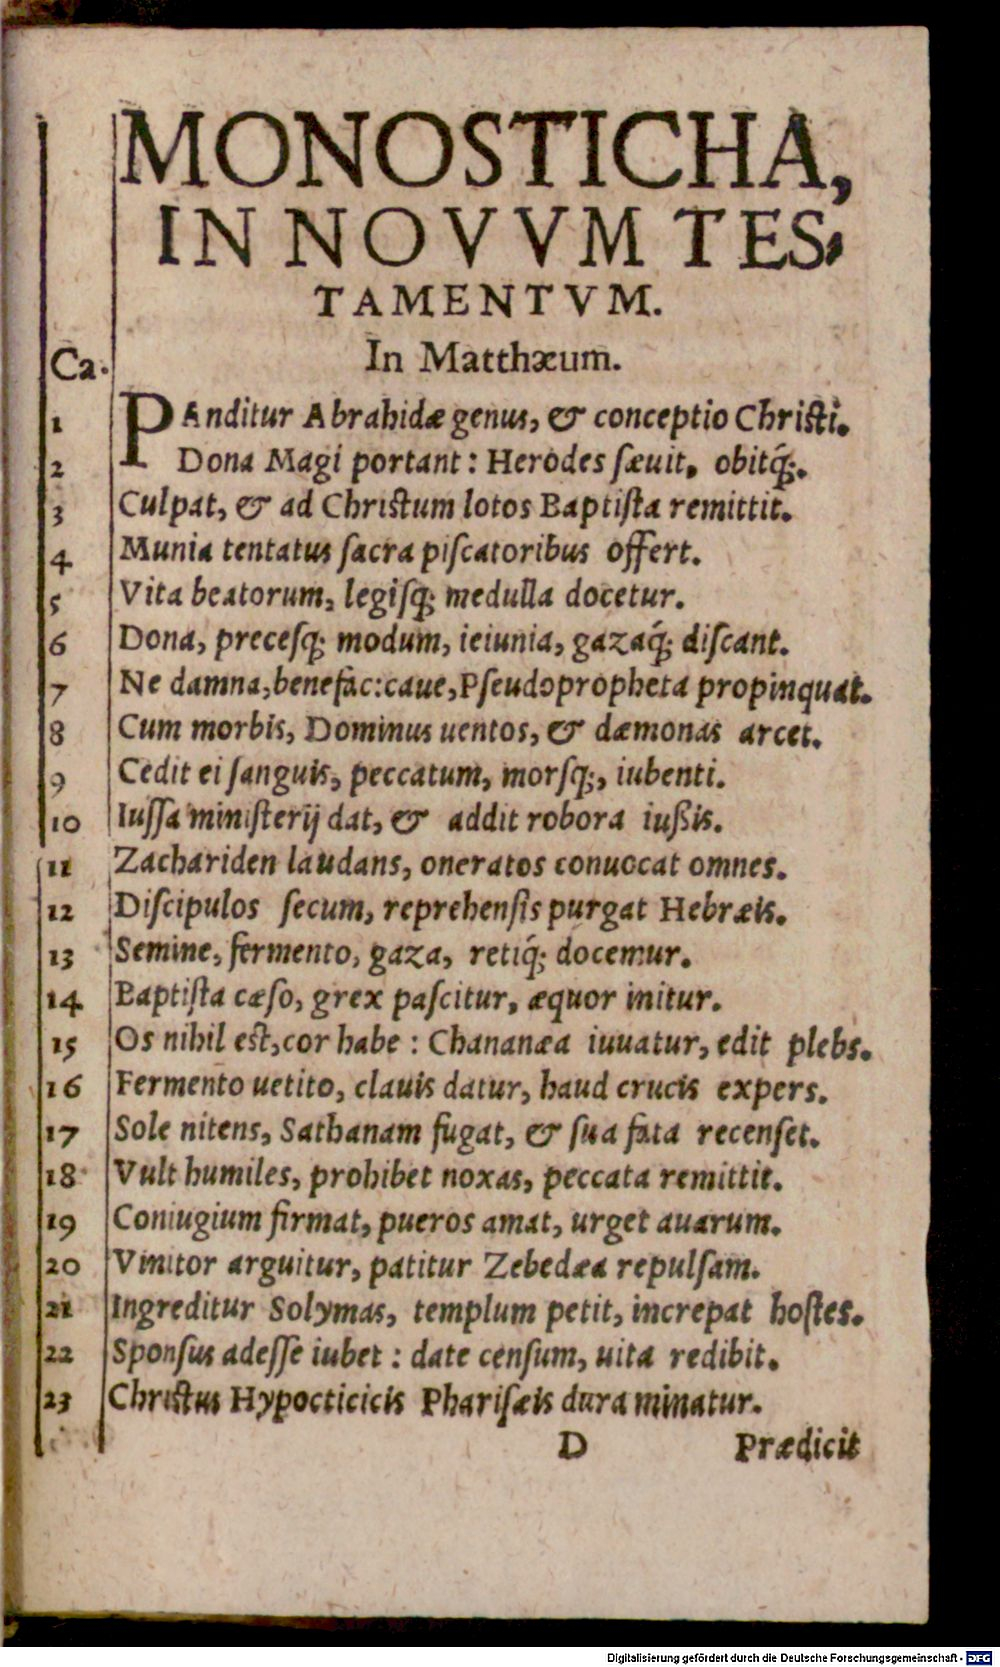 MONOSTICHA,
IN NOVVM TES-
TAMENTVM.
In Matthæum.
Ca.
1 PAnditur Abrahidæ genus, & conceptio Christi.
2 Dona Magi portant: Herodes sæuit, obitq́;.
3 Culpat, & ad Christum lotos Baptista remittit.
4 Munia tentatus sacra piscatoribus offert.
5 Vita beatorum, legisq; medulla docetur.
6 Dona, precesq; modum, ieiunia, gazaq́; discant.
7 Ne damna, benefac: caue, Pseudopropheta propinquat.
8 Cum morbis, Dominus uentos, & dæmonas arcet.
9 Cedit ei sanguis, peccatum, morsq;, iubenti.
10 Iussa ministerij dat, & addit robora iussis.
11 Zachariden laudans, oneratos conuocat omnes.
12 Discipulos secum, reprehensis purgat Hebræis.
13 Semine, fermento, gaza, retiq́; docemur.
14 Baptista cæso, grex pascitur, æquor initur.
15 Os nihil est, cor habe: Chananæa iuuatur, edit plebs.
16 Fermento uetito, clauis datur, haud crucis expers.
17 Sole nitens, Sathanam fugat, & sua fata recenset.
18 Vult humiles, prohibet noxas, peccata remittit.
19 Coniugium firmat, pueros amat, urget auarum.
20 Vinitor arguitur, patitur Zebedæa repulsam.
21 Ingreditur Solymas, templum petit, increpat hostes.
22 Sponsus adesse iubet: date censum, uita redibit.
23 Christus Hypocticicis Pharisæis dura minatur.
D Prædicit
Digitalisierung gefördert durch die Deutsche Forschungsgemeinschaft - DFG